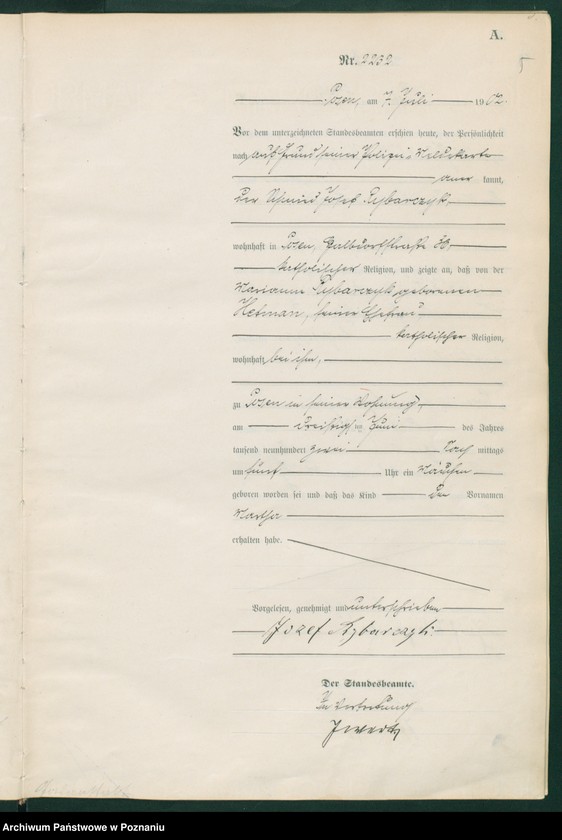 A.
5
Nr. 2232
Posen, am 7. Juli 1902.
Vor dem unterzeichneten Standesbeamten erschien heute, der Persönlichkeit
nach auf Grund seiner Polizei-Meldekarte
aner kannt,
der Schmied Josef Rybarczyk,
wohnhaft in Posen,
katholischer Religion, und zeigte an, daß von der
Marianna Rybarczyk geborenen
Hetman, seiner Ehefrau
katholischer Religion,
wohnhaft bei ihm,
zu Posen in seiner Wohnung,
am dreißigsten Juni des Jahres
tausend neunhundert zwei Nach mittags
um fünf Uhr ein Mädchen
geboren worden sei und daß das Kind den Vornamen
Martha
erhalten habe.
Vorgelesen, genehmigt und unterschrieben
Józef Rybarczyk.
Der Standesbeamte.
In Vertretung
Archiwum Państwowe w Poznaniu